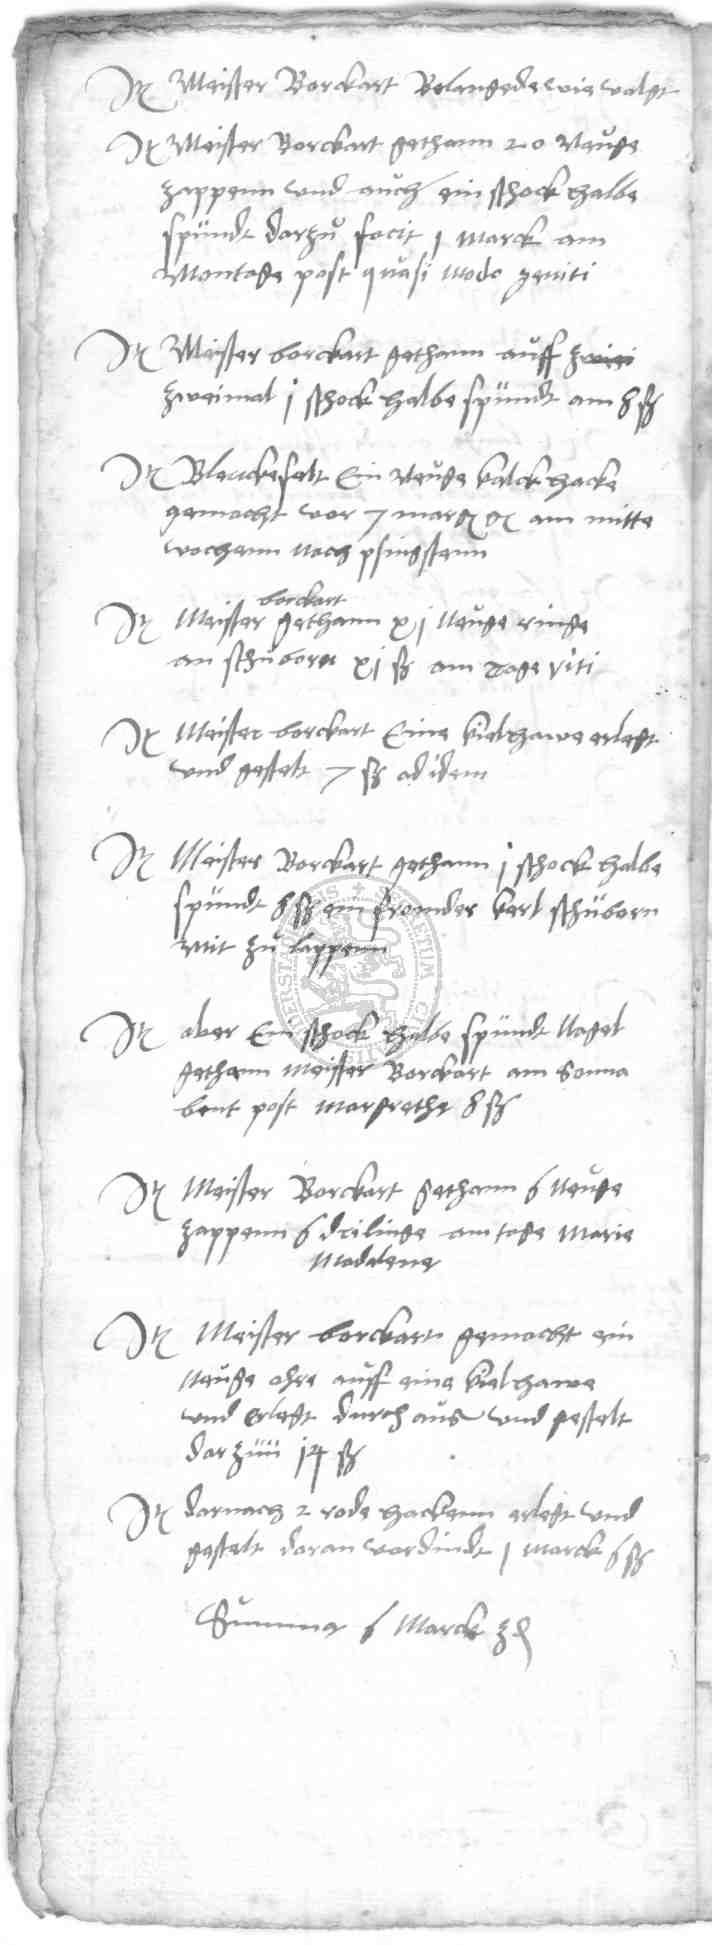 Jt Meister Borckart Belangede wie volgt
Jt Meister Borckart gethann 20 Neuge
zappenn und auch ein schock halbe
spündt darzu facit j Marck am
Montage post quasi modo geniti
Jt Meister borckart gethann auff
zweimal j schock halbe spündt am 8 ß
Jt Blanckefelt Ein Neuge kalck hacke
gemacht vor 7 am mitte
wochenn nach pfingstenn
borckart
Jt Meister gethann xj Neuge ringe
an schuborn xj ß am tage viti
Jt Meister borckart Eine kielhawe erlegt
und gestelt 7 ß ad idem
Jt Meister Borckart gethann j schock halbe
spündt 8 ß ein fromder karl schuborn
mit zu lappenn
Jt aber Ein schock halbe spündt Nagel
gethann Meister Borckart am Sonna
bent post Margrethe 8 ß
Jt Meister Borckart gethann 6 Neuge
zappenn 6 drilinge am tage Marie
Madalene
Jt Meister borckart gemacht ein
Neuge ohre auff eine kielhawe
und erlegt durch aus und gestelt
darzuu 14 ß
Jt darnach 2 rode hackenn erlegt und
gestelt daran vordindt j Marck 6 ß
Summa 6 Marck